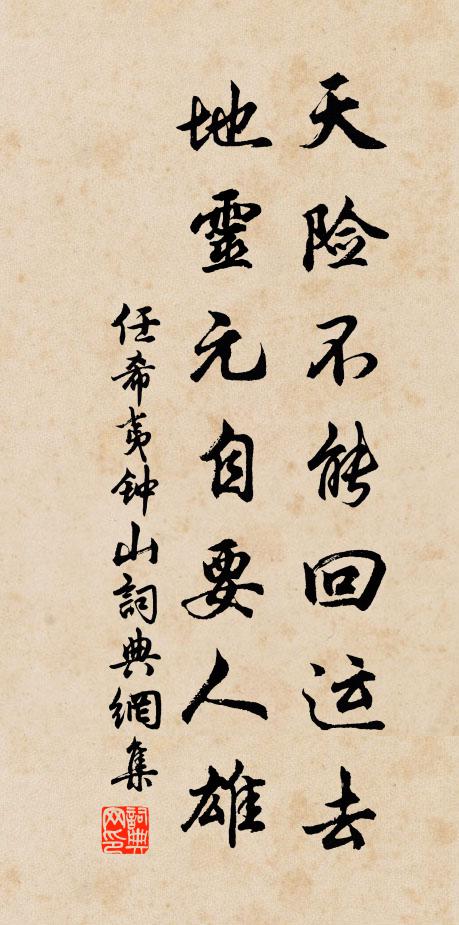 天险不能回运去
地靈元自要人雄
任希夷钟山詞典網集
詞典网印